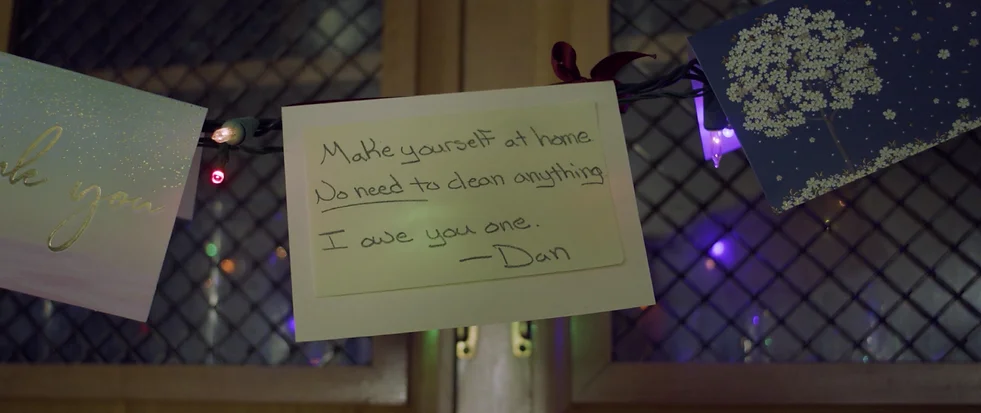 you
Make yourself at home
No need to clean anything.
I owe you one.
—Dan